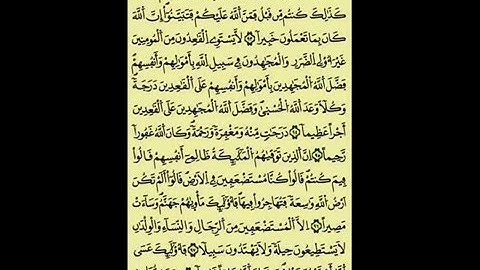 كَذَٰلِكَ كُنتُم مِّن قَبْلُ فَمَنَّ اَ۬للَّهُ عَلَيْكُمْ فَتَبَيَّنُوٓاْۖ إِنَّ اَ۬للَّهَ
كَانَ بِمَا تَعْمَلُونَ خَبِيراٗ لَّا يَسْتَوِے اِ۬لْقَٰعِدُونَ مِنَ اَ۬لْمُومِنِينَ
غَيْرَ أُوْلِے اِ۬لضَّرَرِ وَالْمُجَٰهِدُونَ فِے سَبِيلِ اِ۬للَّهِ بِأَمْوَٰلِهِمْ وَأَنفُسِهِمْۖ
فَضَّلَ اَ۬للَّهُ اُ۬لْمُجَٰهِدِينَ بِأَمْوَٰلِهِمْ وَأَنفُسِهِمْ عَلَى اَ۬لْقَٰعِدِينَ دَرَجَةٗۖ
وَكُلّاٗ وَعَدَ اَ۬للَّهُ اُ۬لْحُسْنَىٰۖ وَفَضَّلَ اَ۬للَّهُ اُ۬لْمُجَٰهِدِينَ عَلَى اَ۬لْقَٰعِدِينَ
أَجْراً عَظِيماٗ دَرَجَٰتٖ مِّنْهُ وَمَغْفِرَةٗ وَرَحْمَةٗۖ وَكَانَ اَ۬للَّهُ غَفُوراٗ
رَّحِيماًۖ إِنَّ اَ۬لذِينَ تَوَفَّيٰهُمُ اُ۬لْمَلَٰٓئِكَةُ ظَالِمِے أَنفُسِهِمْ قَالُواْ
فِيمَ كُنتُمْۖ قَالُواْ كُنَّا مُسْتَضْعَفِينَ فِے اِ۬لْأَرْضِۖ قَالُوٓاْ أَلَمْ تَكُنْ
أَرْضُ اُ۬للَّهِ وَٰسِعَةٗ فَتُهَاجِرُواْ فِيهَاۖ فَأُوْلَٰٓئِكَ مَأْوَيٰهُمْ جَهَنَّمُۖ وَسَآءَتْ
مَصِيراً إِلَّا اَ۬لْمُسْتَضْعَفِينَ مِنَ اَ۬لرِّجَالِ وَالنِّسَآءِ وَالْوِلْدَٰنِ
لَا يَسْتَطِيعُونَ حِيلَةٗ وَلَا يَهْتَدُونَ سَبِيلاٗۖ فَأُوْلَٰٓئِكَ عَسَى